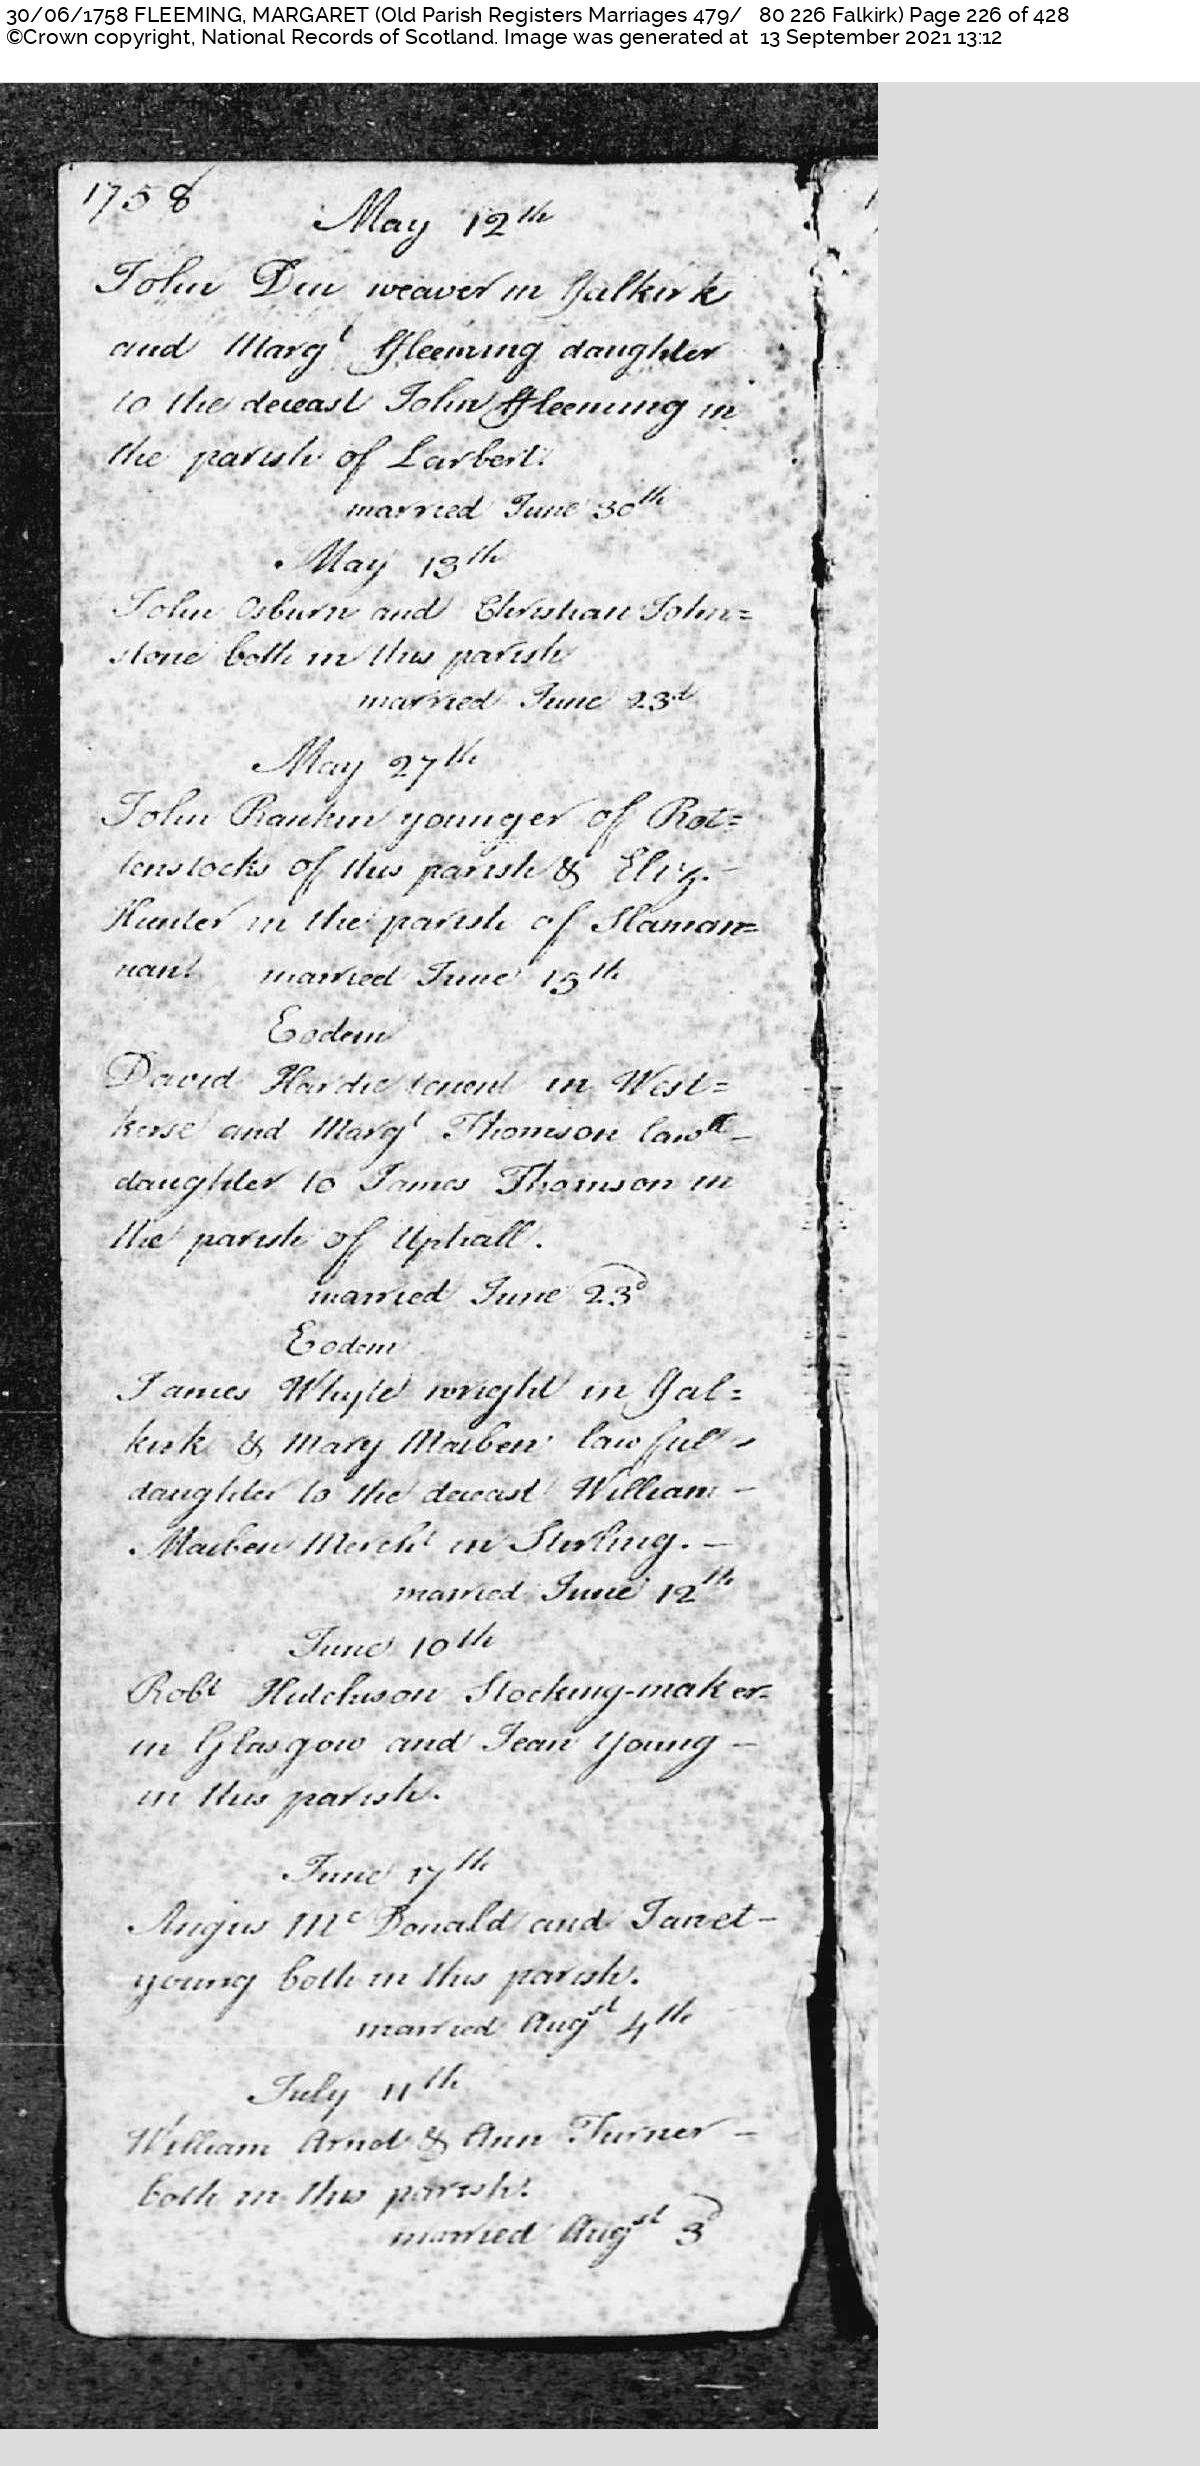 30/06/1758 FLEEMING, MARGARET (Old Parish Registers Marriages 479/ 80 226 Falkirk) Page 226 of 428
©Crown copyright, National Records of Scotland. Image was generated at 13 September 2021 13:12
1758
May 12th
John Din weaver in ffalkirk
and Margt ffleeming daughter
to the deceast John ffleeming in
the parish of Larbert.
married June 30th
May 13th
John Osburn and Christian John=
stone both in this parish
married June 23d
May 27th
John Rankin younger of Rot=
tenstocks of this parish & Eliz.
Hunter in the parish of Slaman=
nan. married June 15th
Eodem
David Hardie tenent in West=
kerse and Margt Thomson lawll
daughter to James Thomson in
the parish of Uphall.
married June 23d
Eodem
James Whyte wright in ffal=
kirk & Mary Maiben lawfull
daughter to the deceast William
Maiben Mercht in Stirling.
married June 12th
June 10th
Robt Hutchison Stocking-maker
in Glasgow and Jean Young
in this parish.
June 17th
Angus McDonald and Janet
young both in this parish.
married Augst 4th
July 11th
William Arnot & Ann Turner
both in this parish.
married Augst 3d